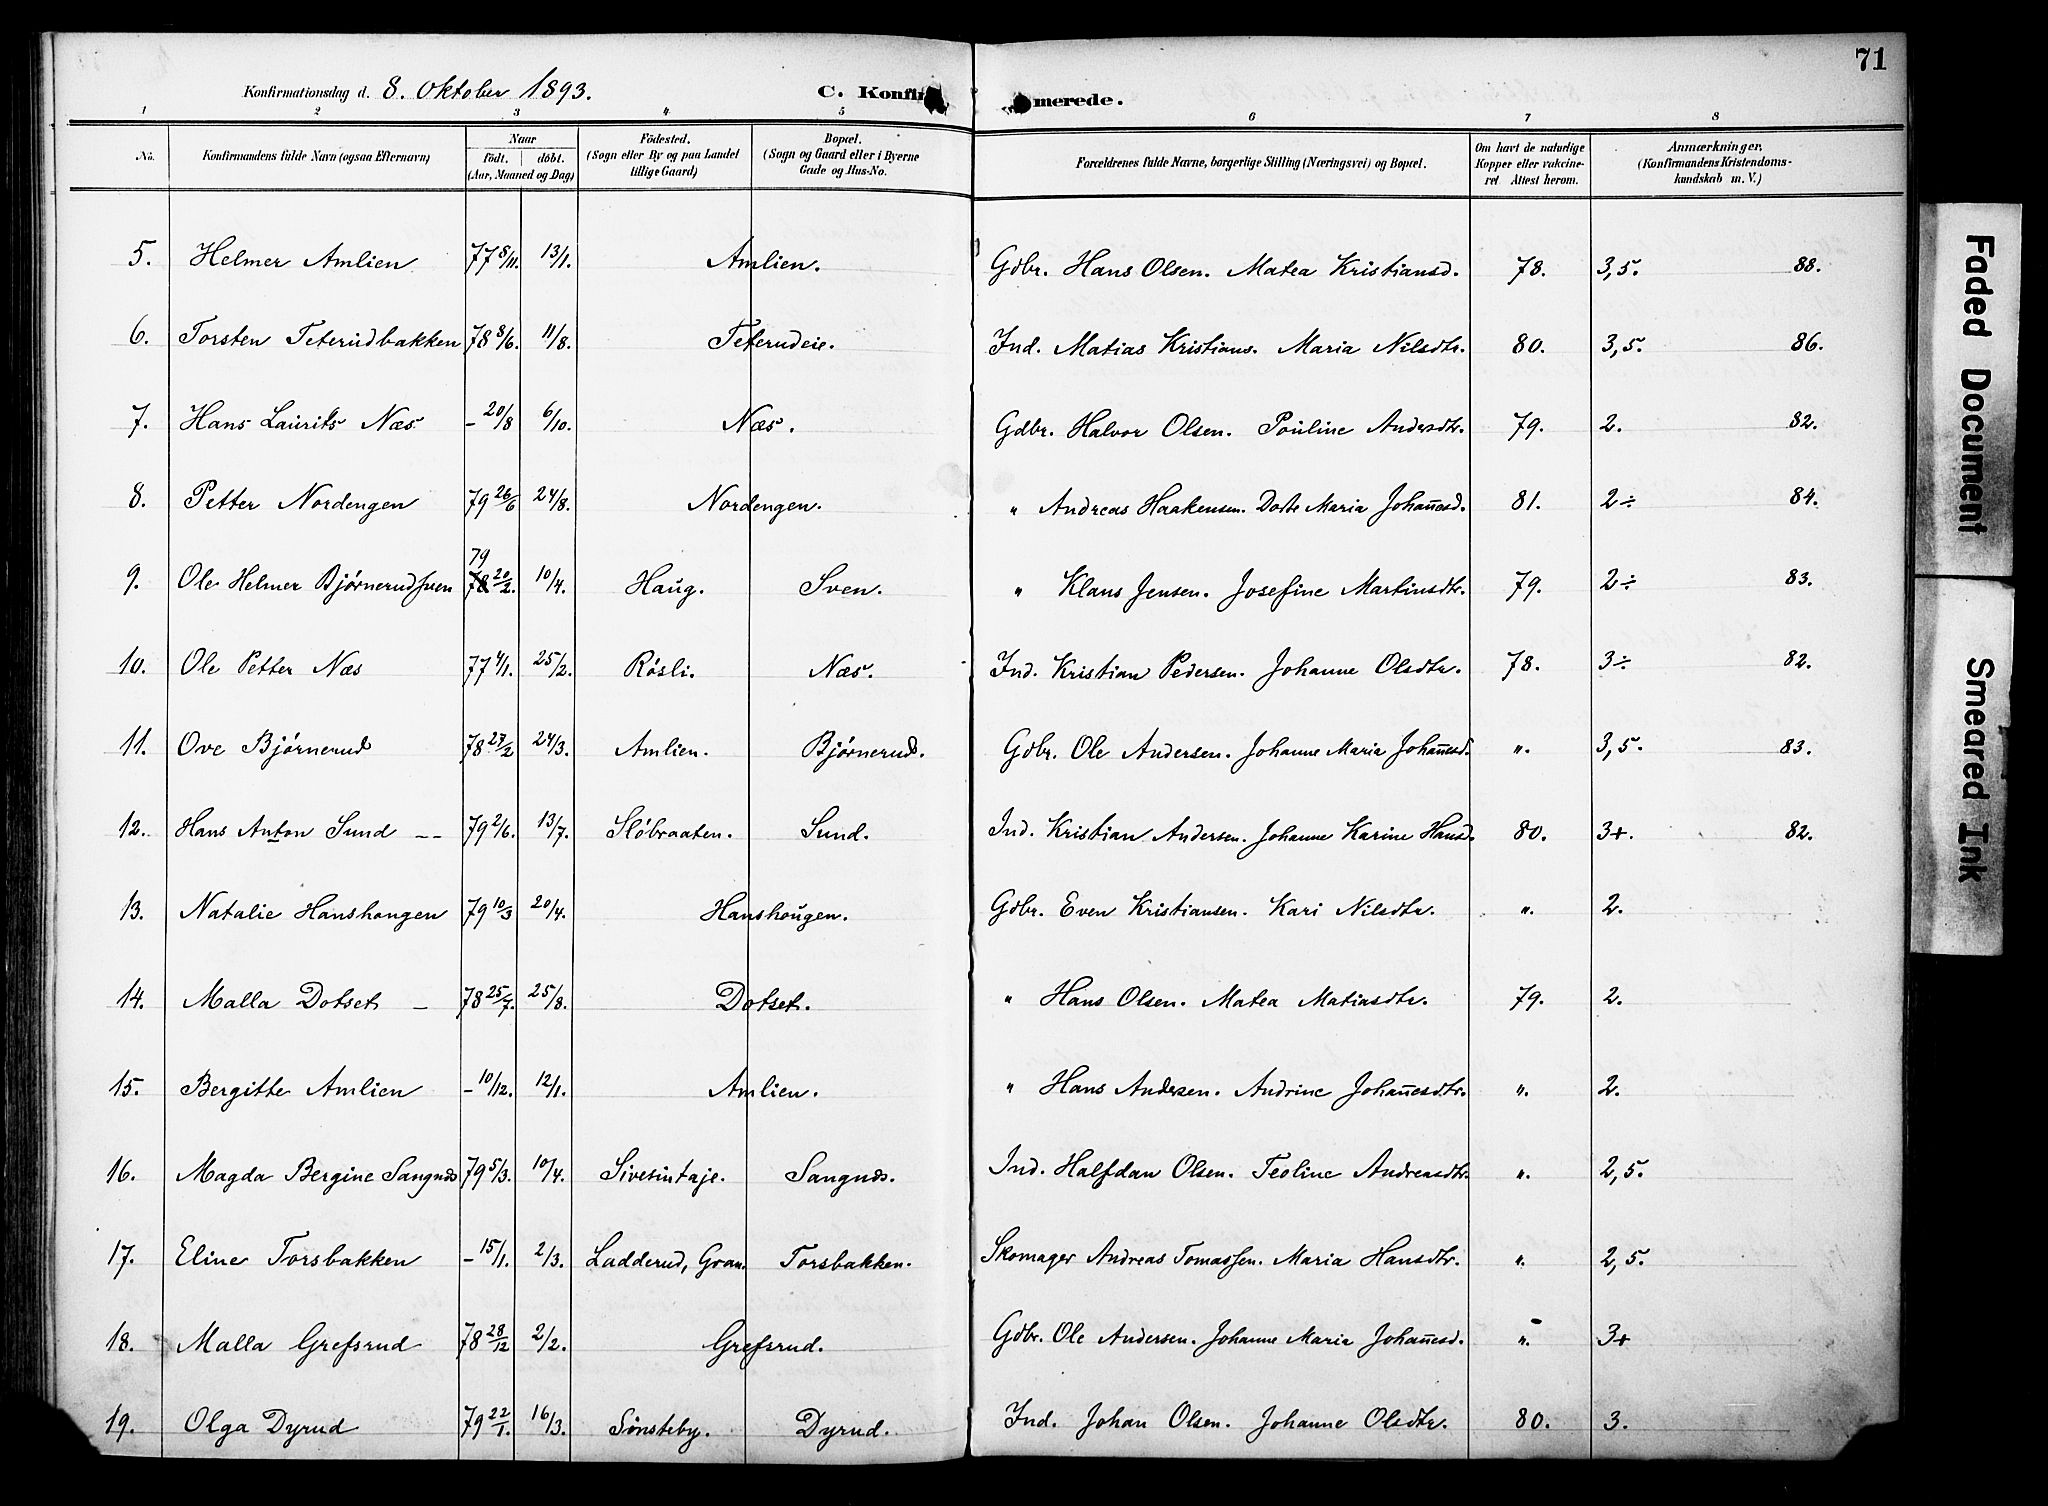 71
Konfirmationsdag d. 8. Oktober 1893. C. Konfirmerede.
1 2 3 4 5 6 7 8
No. Konfirmandens fulde Navn (ogsaa Efternavn) Naar født. døbt. (Aar, Maaned og Dag) Födested. (Sogn eller By og paa Landet tillige Gaard) Bopæl. (Sogn og Gaard eller i Byerne Gade og Hus-No. Forældrenes fulde Navne, borgerlige Stilling (Næringsvei) og Bopæl. Om havt de naturlige Kopper eller vakcineret Attest herom. Anmærkninger. (Konfirmandens Kristendomskundskab m. V.)
5. Helmer Amlien 77 8/11. 13/1. Amlien. Gdbr. Hans Olsen. Matea Kristiansd. 78. 3,5. 88.
6. Torsten Teterudbakken 78 8/6. 11/8. Teterudeie. Ind. Matias Kristians. Maria Nilsdtr. 80. 3,5. 86.
7. Hans Laurits Næs - 20/8 6/10. Næs. Gdbr. Halvor Olsen. Pouline Andersdtr. 79. 2. 82.
8. Petter Nordengen 79 26/6 24/8. Nordengen. " Andreas Haakensen. Dorte Maria Johan̄esd. 81. 2÷ 84.
9. Ole Helmer Bjørnerudsven 79 78 20/2. 10/4. Haug. Sven. " Klaus Jensen. Josefine Martinsdtr. 79. 2÷ 83.
10. Ole Petter Næs 77 4/1. 25/2. Røsli. Næs. Ind. Kristian Pedersen. Johanne Olsdtr. 78. 3÷ 82.
11. Ove Bjørnerud 78 27/2 24/3. Amlien. Bjørnerud. Gdbr. Ole Andersen. Johanne Maria Johan̄esd. ". 3,5. 83.
12. Hans Anton Sund -- 79 2/6. 13/7. Sløbraaten. Sund. Ind. Kristian Andersen. Johanne Karine Hansd. 80. 3+. 82.
13. Natalie Hanshougen 79 10/3 20/4. Hanshougen. Gdbr. Even Kristiansen. Kari Nilsdtr. ". 2.
14. Malla Dotset - 78 25/7. 25/8. Dotset. " Hans Olsen. Matea Matiasdtr. 79. 2.
15. Bergitte Amlien - 10/12. 12/1. Amlien. " Hans Andersen. Andrine Johan̄esdtr. ". 2.
16. Magda Bergine Sangnæs 79 5/3. 10/4. Sivesintaje. Sangnæs. Ind. Halfdan Olsen. Teoline Andreasdtr. ". 2,5.
17. Eline Torsbakken - 15/1. 2/3. Ladderud, Gran. Torsbakken. Skomager Andreas Tomassen. Maria Hansdtr. ". 2,5.
18. Malla Grefsrud 78 28/12 2/2. Grefsrud. Gdbr. Ole Andersen. Johanne Maria Johan̄esd. ". 3+
19. Olga Dyrud 79 22/1. 16/3. Sønsteby. Dyrud. Ind. Johan Olsen. Johanne Olsdtr. 80. 3.
Faded Document
Smeared Ink